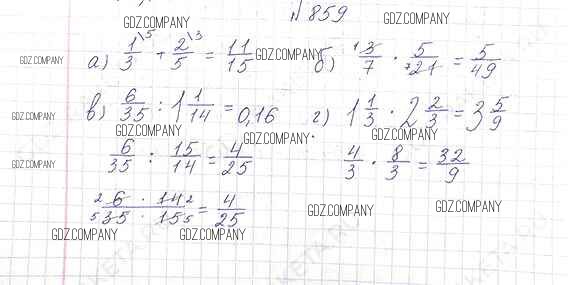 № 859
GDZ.COMPANY GDZ.COMPANY
а) 1\5/3 + 2\3/5 = 11/15 GDZ.COMPANY б) 1 3/7 · 5/7 21 = 5/49
GDZ.COMPANY
в) 6/35 : 1 1/14 = 0,16 г) 1 1/3 · 2 2/3 = 3 5/9
GDZ.COMPANY
GDZ.COMPANY GDZ.COMPANY GDZ.COMPANY
6/35 : 15/14 = 4/25 4/3 · 8/3 = 32/9
GDZ.COMPANY
2 6 · 14 2/5 35 · 15 5 = 4/25
GDZ.COMPANY GDZ.COMPANY
GDZ.COMPANY GDZ.COMPANY